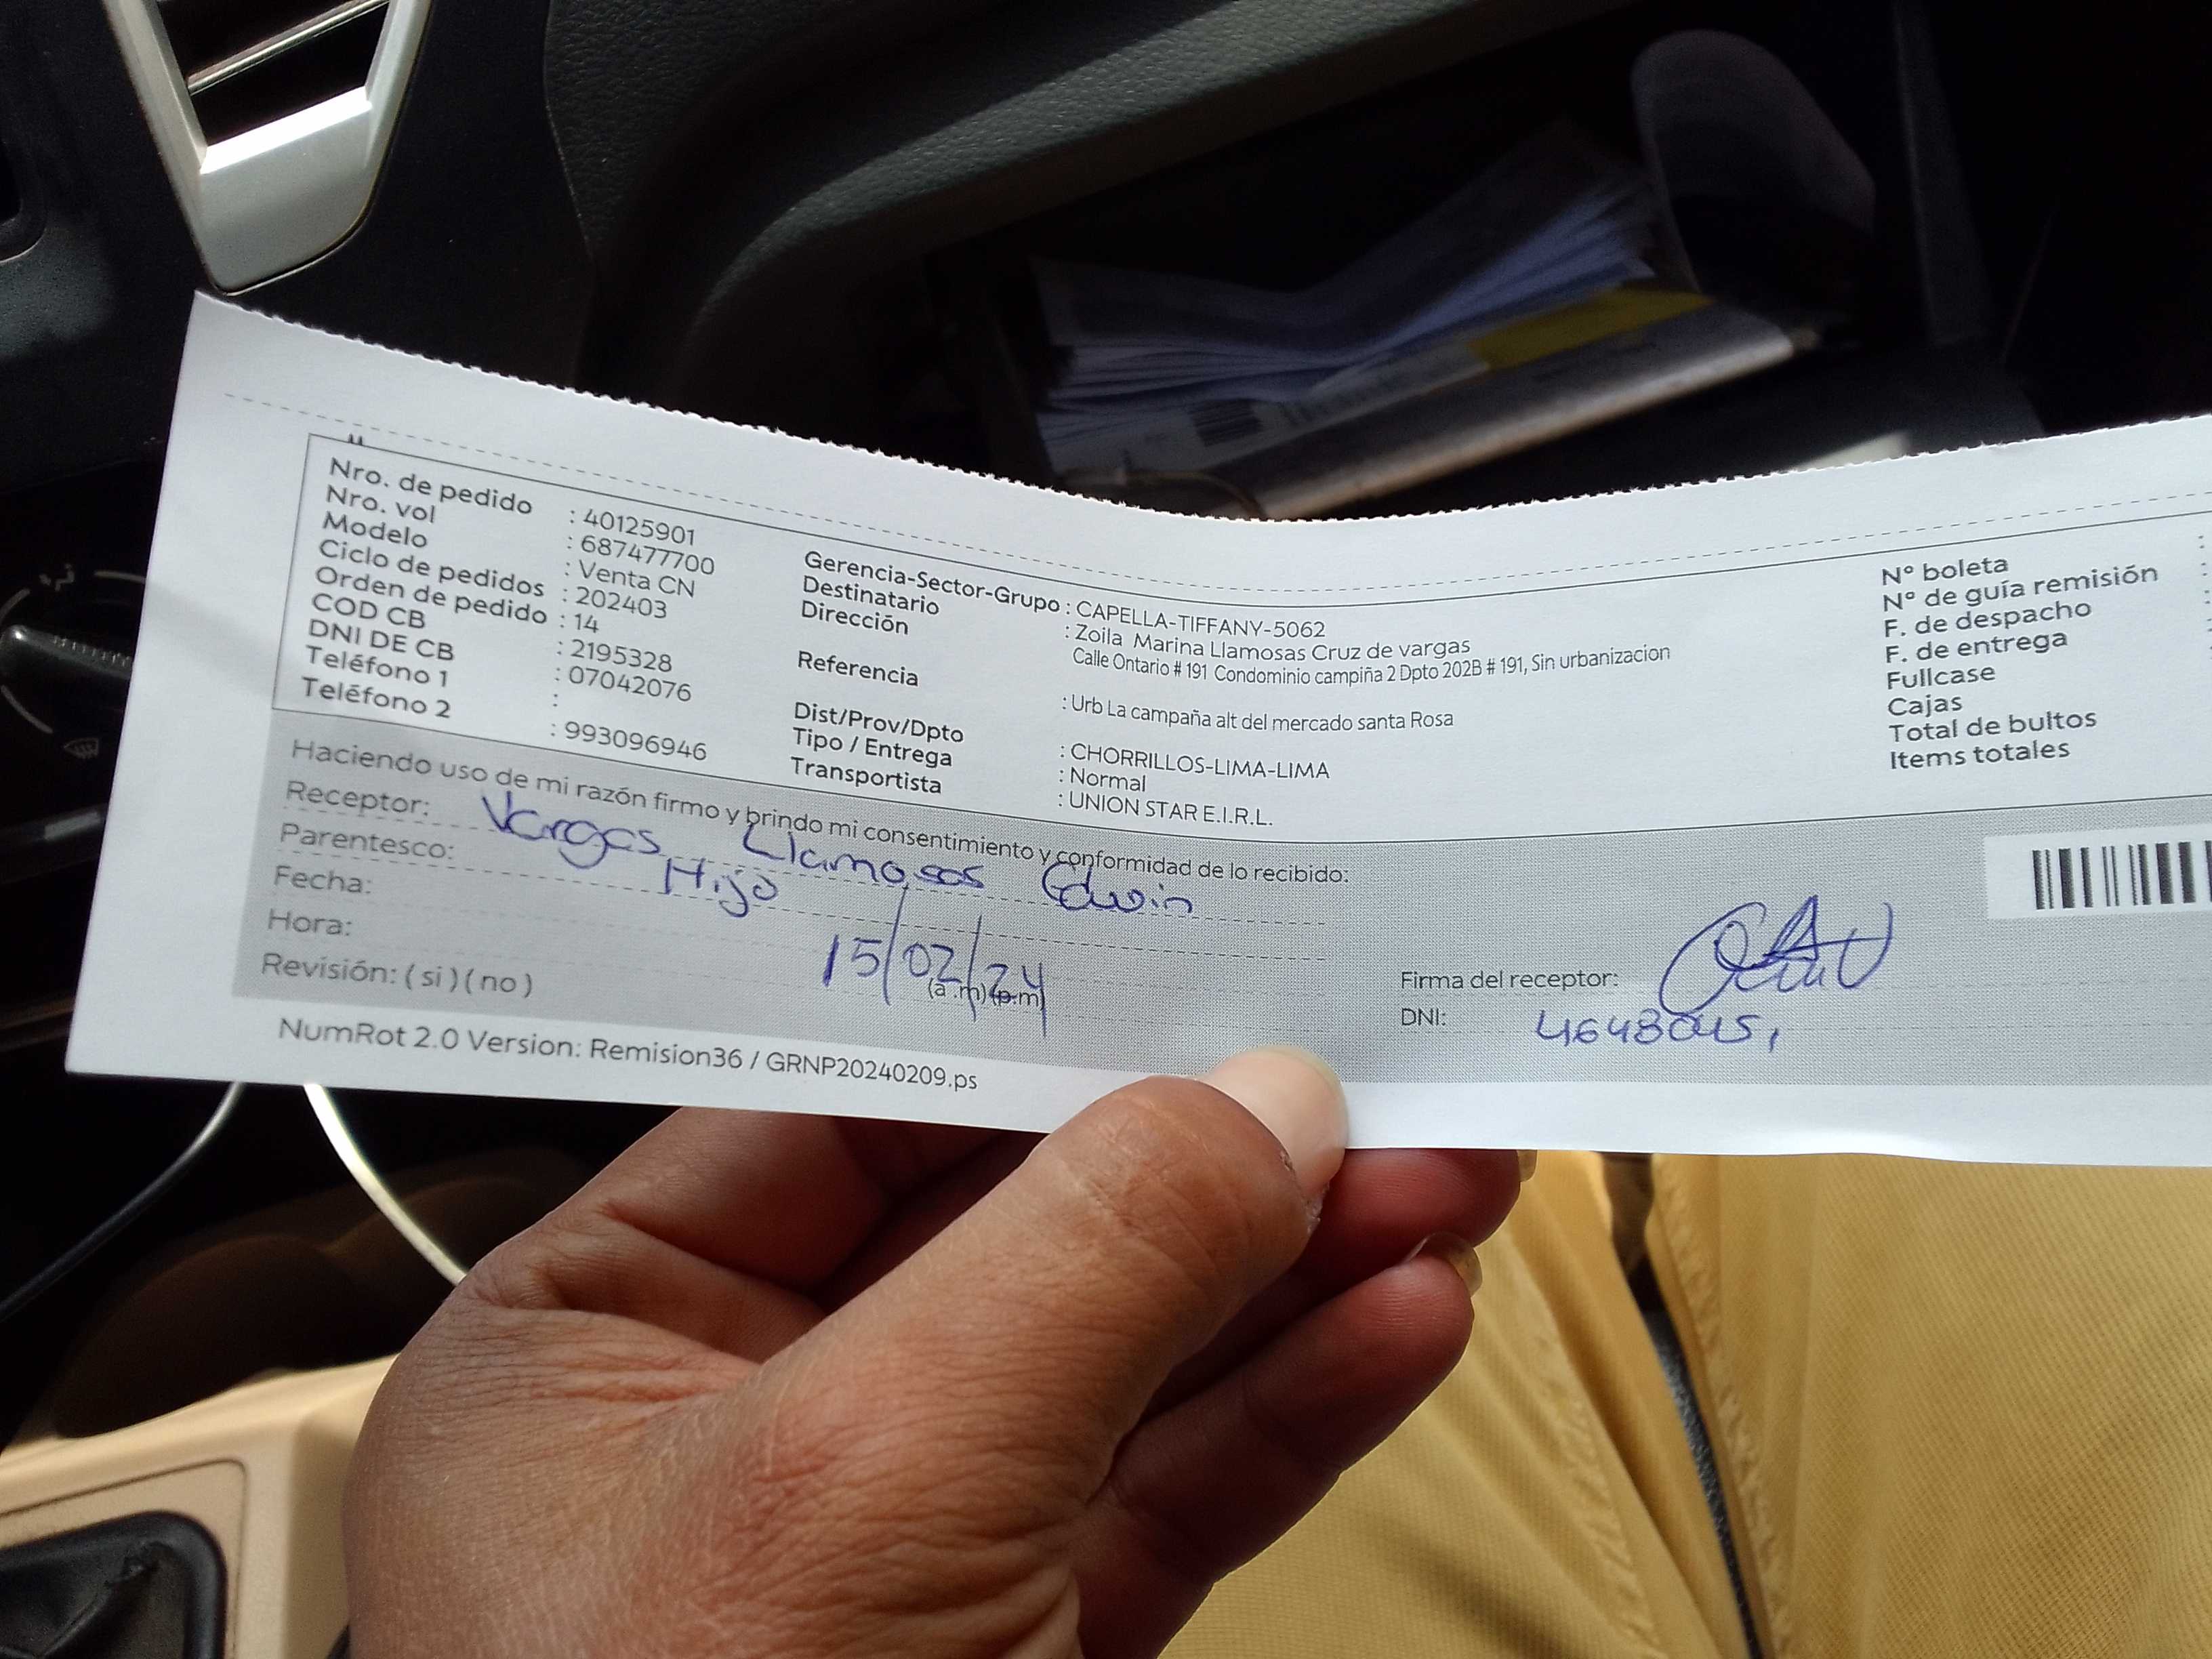 Nro. de pedido : 40125901
Nro. vol : 687477700
Modelo : Venta CN
Ciclo de pedidos : 202403
Orden de pedido : 14
COD CB : 2195328
DNI DE CB : 07042076
Teléfono 1 :
Teléfono 2 : 993096946
Gerencia-Sector-Grupo : CAPELLA-TIFFANY-5062
Destinatario : Zoila Marina Llamosas Cruz de vargas
Dirección Calle Ontario # 191 Condominio campiña 2 Dpto 202B # 191, Sin urbanizacion
Referencia : Urb La campaña alt del mercado santa Rosa
Dist/Prov/Dpto : CHORRILLOS-LIMA-LIMA
Tipo / Entrega : Normal
Transportista : UNION STAR E.I.R.L.
N° boleta :
N° de guía remisión :
F. de despacho :
F. de entrega
Fullcase
Cajas
Total de bultos
Items totales
Haciendo uso de mi razón firmo y brindo mi consentimiento y conformidad de lo recibido:
Receptor: Vargas Llamosas Edwin
Parentesco: Hijo
Fecha: 15/02/24
Hora: (a .m) (p.m)
Revisión: ( si ) ( no )
Firma del receptor:
DNI:
NumRot 2.0 Version: Remision36 / GRNP20240209.ps